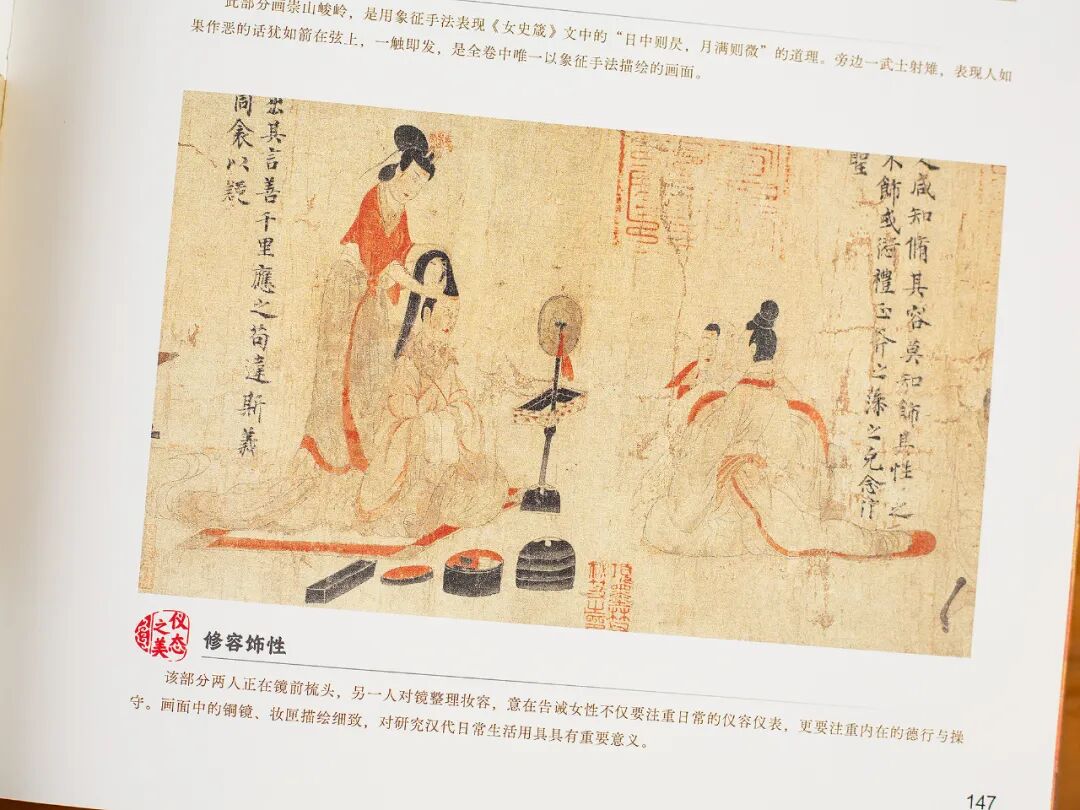 此部分画崇山峻岭，是用象征手法表现《女史箴》文中的“日中则昃，月满则微”的道理。旁边一武士射雉，表现人如
果作恶的话犹如箭在弦上，一触即发，是全卷中唯一以象征手法描绘的画面。
人咸知脩其容莫知飾其性之
不飾或愆禮正斧之藻之克念作
聖
出其言善千里應之苟違斯義
同衾以疑
仪态
之美
修容饰性
该部分两人正在镜前梳头，另一人对镜整理妆容，意在告诫女性不仅要注重日常的仪容仪表，更要注重内在的德行与操
守。画面中的铜镜、妆匣描绘细致，对研究汉代日常生活用具具有重要意义。
147